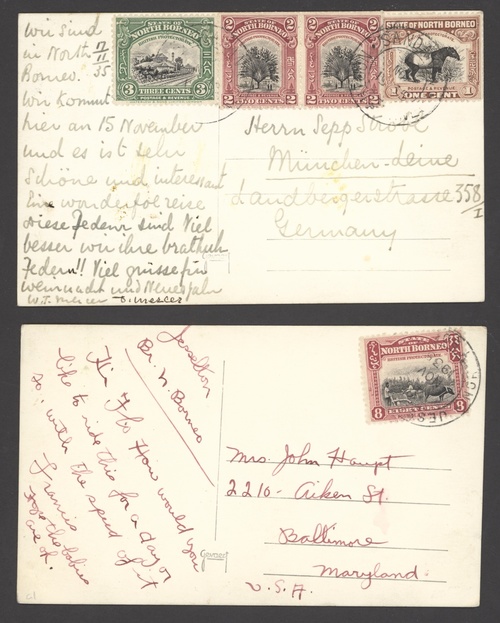 Wir sind 17
in North 11
Borneo. 35
Wir kommt
hier an 15 November
und es ist sehr
Schöne und interessant
Eine wonderfol reise
diese Federn sind Viel
besser wir ihre
Federn!! Viel grüsse für
weinnacht und Neues Jahr
STATE OF
NORTH BORNEO
BRITISH PROTECTORATE
3 THREE CENTS 3
POSTAGE & REVENUE
2 STATE OF 2
NORTH BORNEO
2 TWO CENTS 2
2 STATE OF 2
NORTH BORNEO
2 TWO CENTS 2
STATE OF NORTH BORNEO
POSTAGE & REVENUE
1 ONE CENT 1
SANDA
Herrn Sepp Strobl
München-Leine
Landbergerstrasse 358/I
Germany
Jesselton
Br. N. Borneo
Hi How would you
like to ride this for a day or
so, with the speed of it
Francis
STATE OF
NORTH BORNEO
BRITISH PROTECTORATE
8 EIGHT CENTS 8
NOV
JES
Mrs. John Haupt
2210- Aiken St.
Baltimore
Maryland
U.S.A.
Gevaert